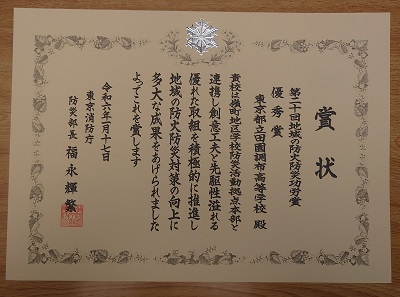 賞状
第二十回地域の防火防災功労賞
優秀賞
東京都立田園調布高等学校 殿
貴校は嶺町地区学校防災活動拠点本部と
連携し創意工夫と先駆性溢れる
優れた取組を積極的に推進し
地域の防火防災対策の向上に
多大な成果をあげられました
よってこれを賞します
令和六年一月十七日
東京消防庁
防災部長 福永輝繁